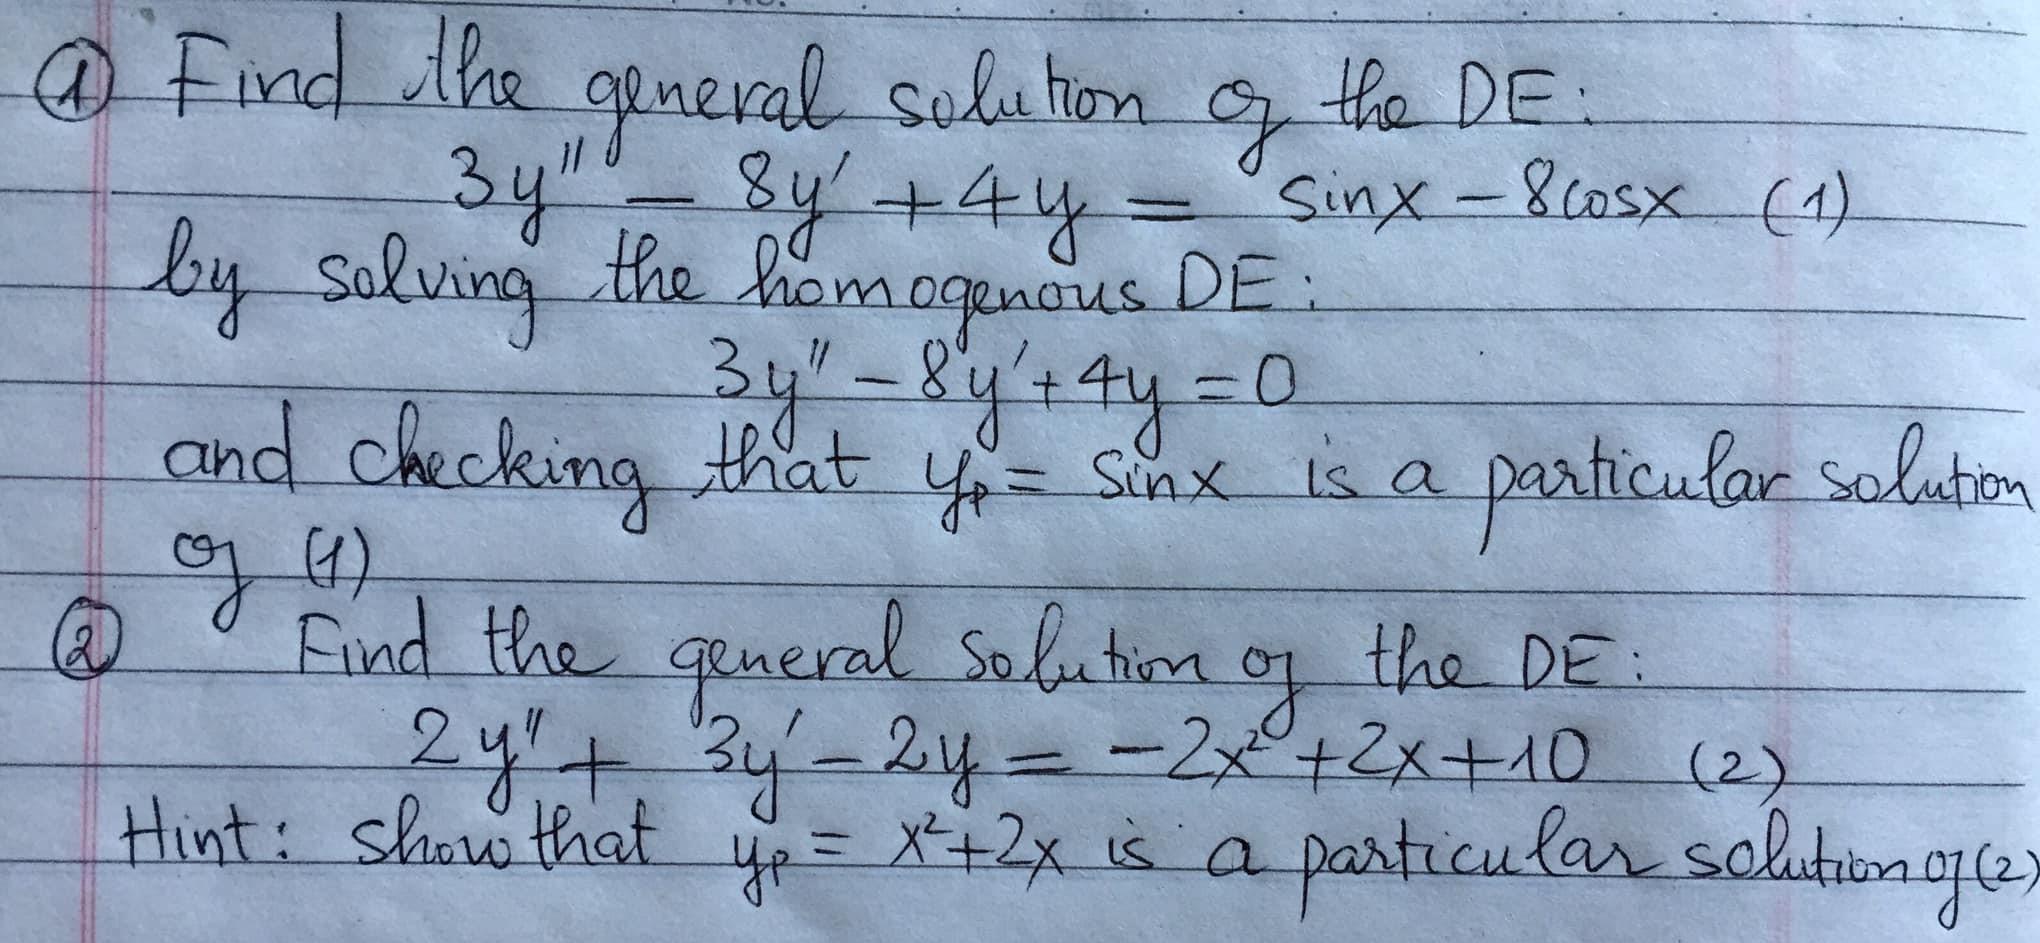 ① Find the general solution of the DE:
3y" - 8y' + 4y = sinx - 8cosx (1)
by solving the homogenous DE:
3y" - 8y' + 4y = 0
and checking that yₚ = sinx is a particular solution
of (1)
② Find the general solution of the DE:
2y" + 3y' - 2y = -2x² + 2x + 10 (2)
Hint: show that yₚ = x² + 2x is a particular solution of (2)